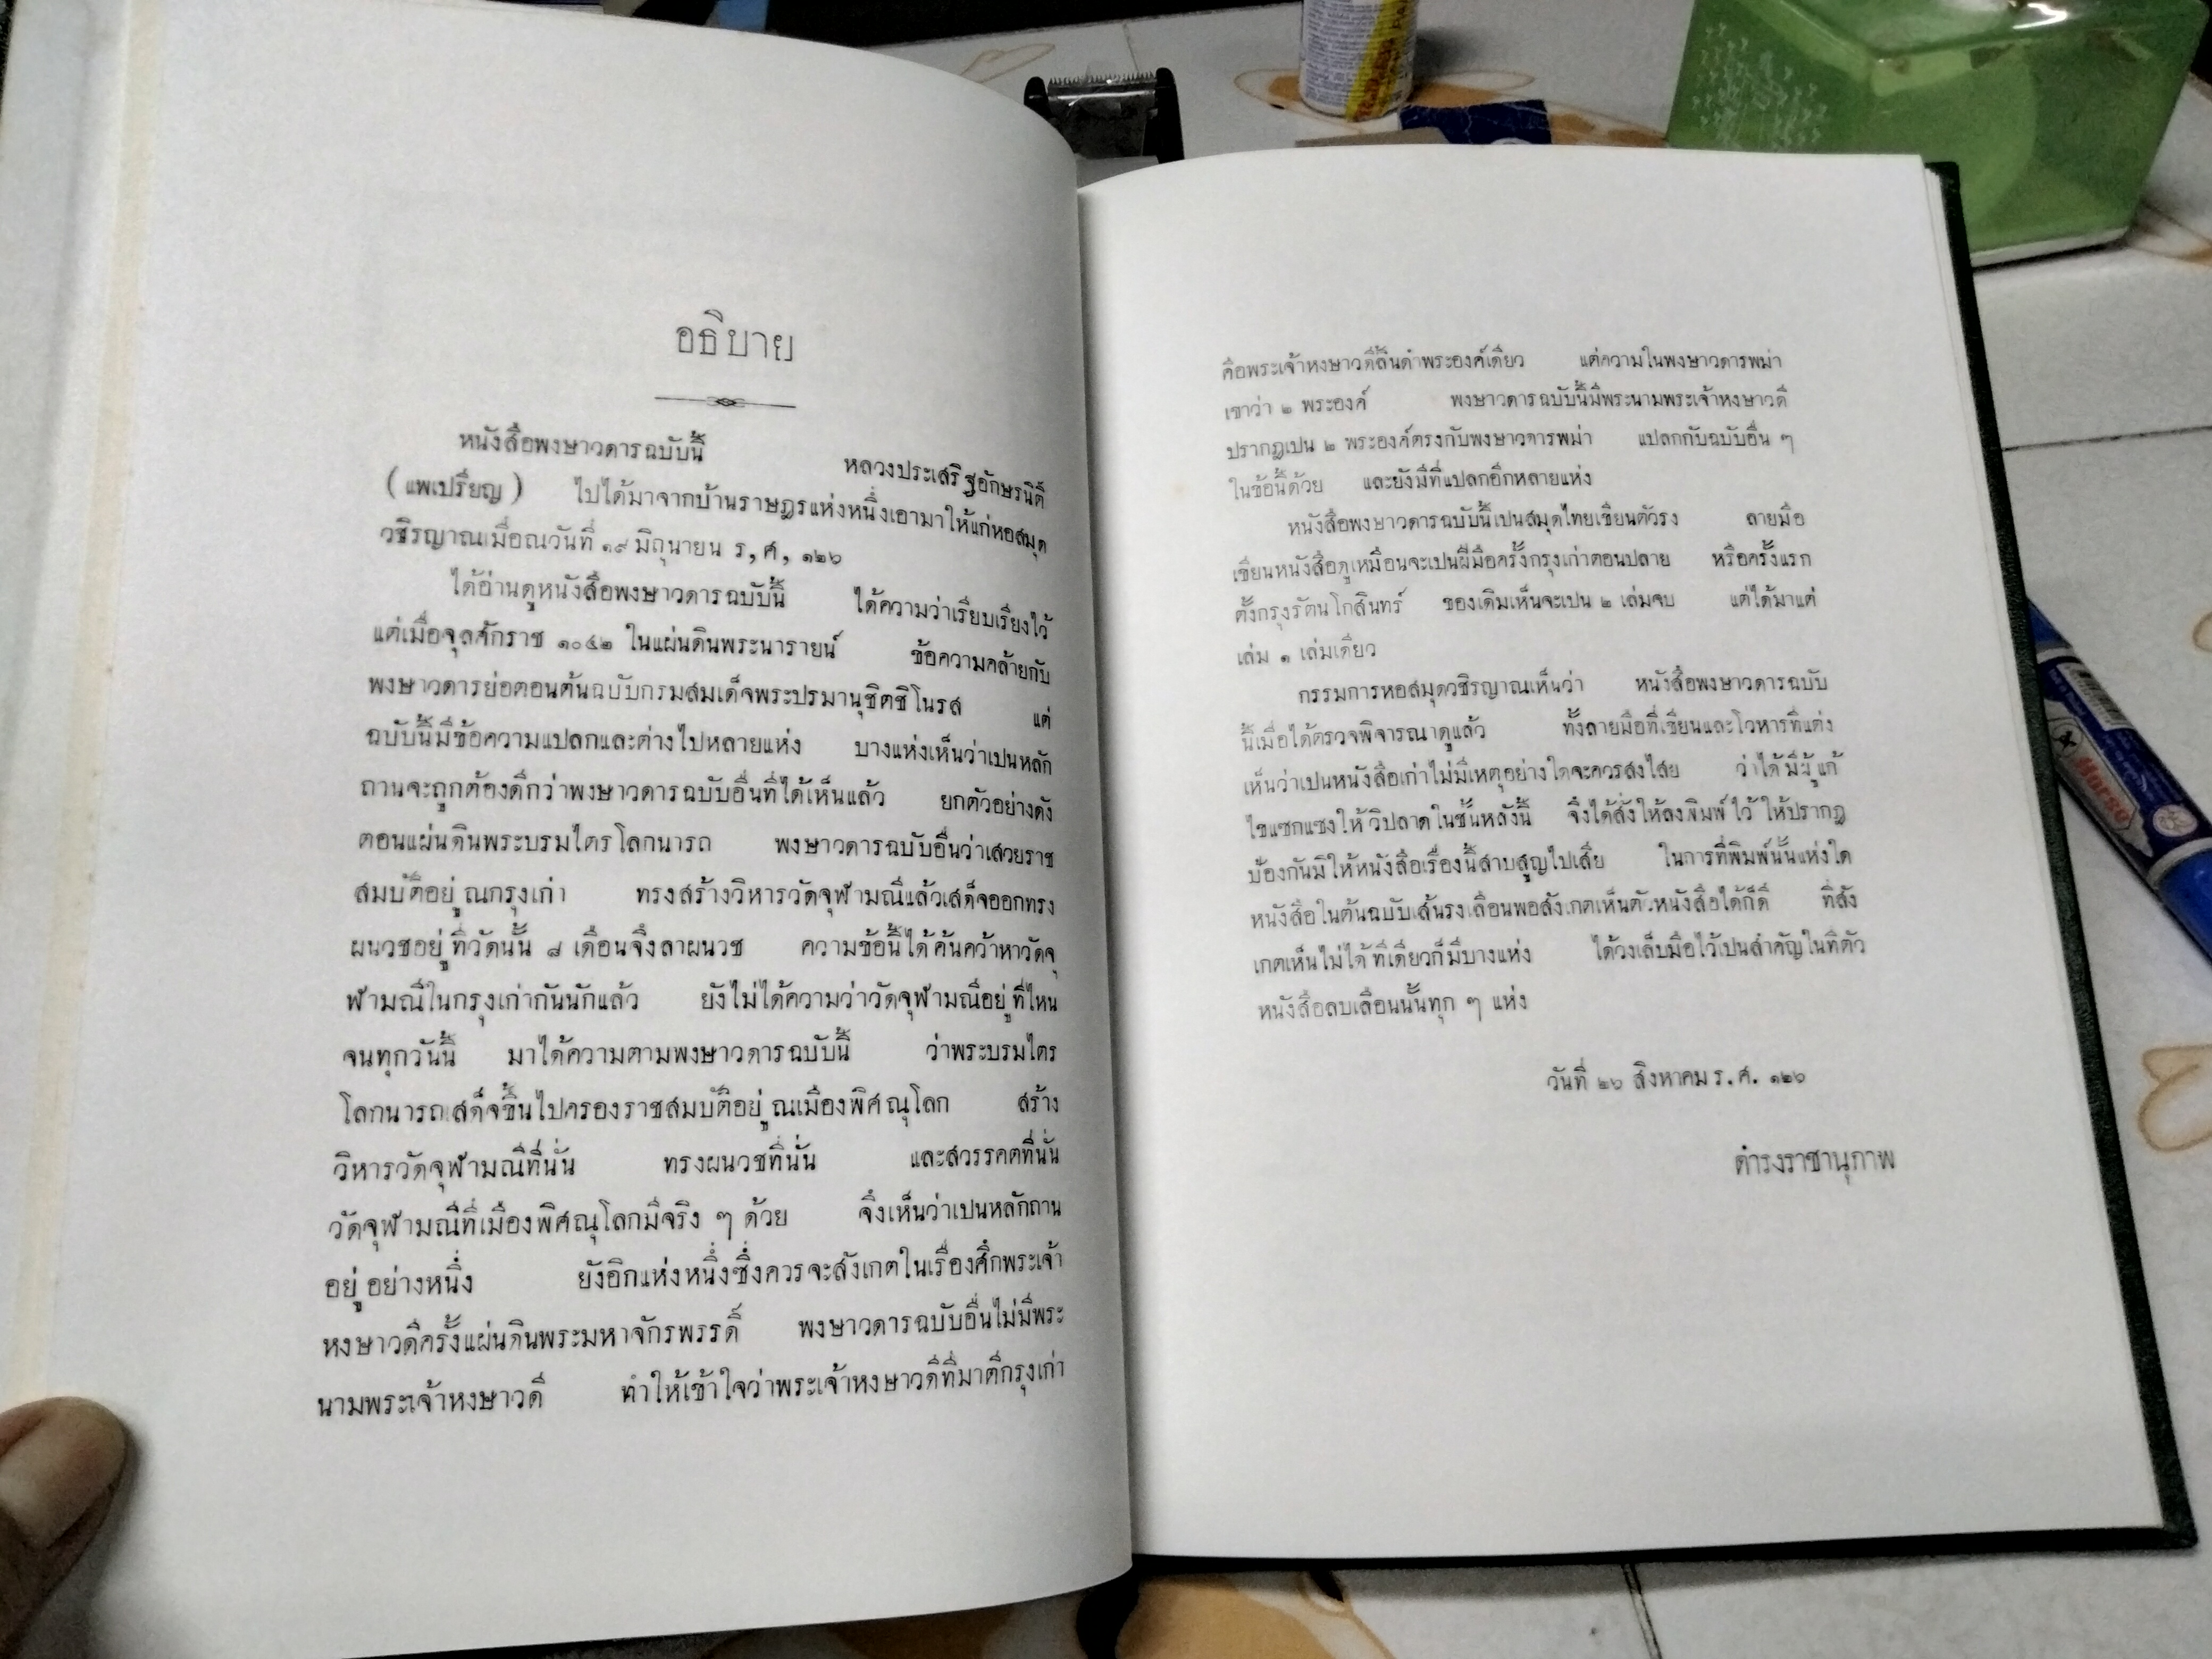 อธิบาย
หนังสือพงษาวดารฉบับนี้ หลวงประเสริฐอักษรนิติ์
(แพเปรียญ) ไปได้มาจากบ้านราษฎรแห่งหนึ่งเอามาให้แก่หอสมุด
วชิรญาณเมื่อณวันที่ ๑๙ มิถุนายน ร,ศ, ๑๒๖
ได้อ่านดูหนังสือพงษาวดารฉบับนี้ ได้ความว่าเรียบเรียงไว้
แต่เมื่อจุลศักราช ๑๐๔๒ ในแผ่นดินพระนารายน์ ข้อความคล้ายกับ
พงษาวดารย่อตอนต้นฉบับกรมสมเด็จพระปรมานุชิตชิโนรส แต่
ฉบับนี้มีข้อความแปลกและต่างไปหลายแห่ง บางแห่งเห็นว่าเปนหลัก
ถานจะถูกต้องดีกว่าพงษาวดารฉบับอื่นที่ได้เห็นแล้ว ยกตัวอย่างดัง
ตอนแผ่นดินพระบรมไตรโลกนารถ พงษาวดารฉบับอื่นว่าเสวยราช
สมบัติอยู่ณกรุงเก่า ทรงสร้างวิหารวัดจุฬามณีแล้วเสด็จออกทรง
ผนวชอยู่ที่วัดนั้น ๘ เดือนจึงลาผนวช ความข้อนี้ได้ค้นคว้าหาวัดจุ
ฬามณีในกรุงเก่ากันนักแล้ว ยังไม่ได้ความว่าวัดจุฬามณีอยู่ที่ไหน
จนทุกวันนี้ มาได้ความตามพงษาวดารฉบับนี้ ว่าพระบรมไตร
โลกนารถเสด็จขึ้นไปครองราชสมบัติอยู่ณเมืองพิศณุโลก สร้าง
วิหารวัดจุฬามณีที่นั่น ทรงผนวชที่นั่น และสวรรคตที่นั่น
วัดจุฬามณีที่เมืองพิศณุโลกมีจริง ๆ ด้วย จึงเห็นว่าเปนหลักถาน
อยู่อย่างหนึ่ง ยังอิกแห่งหนึ่งซึ่งควรจะสังเกตในเรื่องศึกพระเจ้า
หงษาวดีครั้งแผ่นดินพระมหาจักรพรรดิ์ พงษาวดารฉบับอื่นไม่มีพระ
นามพระเจ้าหงษาวดี ทำให้เข้าใจว่าพระเจ้าหงษาวดีที่มาตีกรุงเก่า
คือพระเจ้าหงษาวดีลิ้นดำพระองค์เดียว แต่ความในพงษาวดารพม่า
เขาว่า ๒ พระองค์ พงษาวดารฉบับนี้มีพระนามพระเจ้าหงษาวดี
ปรากฏเปน ๒ พระองค์ตรงกับพงษาวดารพม่า แปลกกับฉบับอื่น ๆ
ในข้อนี้ด้วย และยังมีที่แปลกอิกหลายแห่ง
หนังสือพงษาวดารฉบับนี้เปนสมุดไทยเขียนตัวรง ลายมือ
เขียนหนังสือดูเหมือนจะเปนฝีมือครั้งกรุงเก่าตอนปลาย หรือครั้งแรก
ตั้งกรุงรัตนโกสินทร์ ของเดิมเห็นจะเปน ๒ เล่มจบ แต่ได้มาแต่
เล่ม ๑ เล่มเดียว
กรรมการหอสมุดวชิรญาณเห็นว่า หนังสือพงษาวดารฉบับ
นี้เมื่อได้ตรวจพิจารณาดูแล้ว ทั้งลายมือที่เขียนและโวหารที่แต่ง
เห็นว่าเปนหนังสือเก่าไม่มีเหตุอย่างใดจะควรสงไสย ว่าได้มีผู้แก้
ไขแซกแซงให้วิปลาดในชั้นหลังนี้ จึงได้สั่งให้ลงพิมพ์ไว้ให้ปรากฏ
ป้องกันมิให้หนังสือเรื่องนี้สาบสูญไปเสีย ในการที่พิมพ์นั้นแห่งใด
หนังสือในต้นฉบับเส้นรงเลือนพอสังเกตเห็นตัวหนังสือได้ก็ดี ที่สัง
เกตเห็นไม่ได้ทีเดียวก็มีบางแห่ง ได้วงเล็บมือไว้เปนสำคัญในที่ตัว
หนังสือลบเลือนนั้นทุก ๆ แห่ง
วันที่ ๒๖ สิงหาคม ร.ศ. ๑๒๖
ดำรงราชานุภาพ
Horse